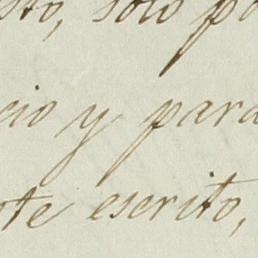 sto, solo po
cio y para
te escrito,